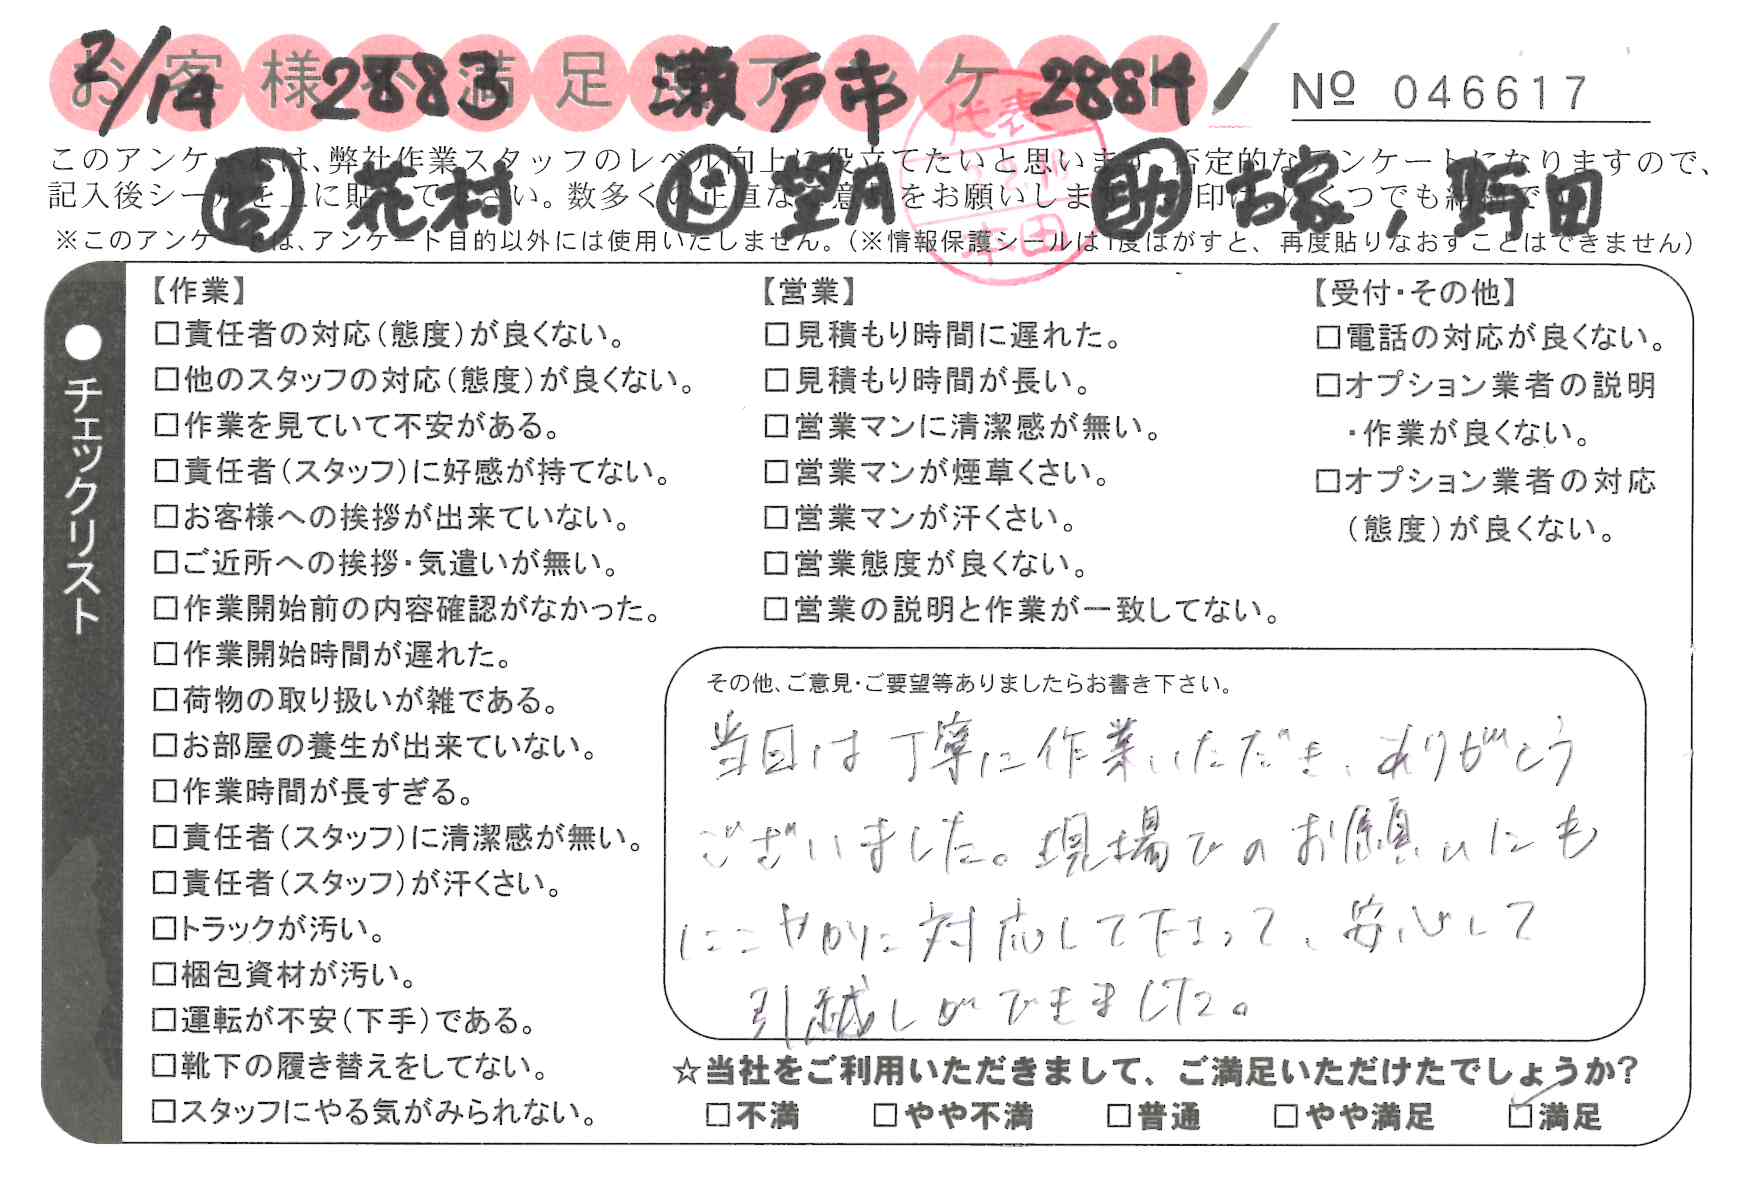 お客様不満足度アンケート
2/14 2883 瀬戸市 2884
№ 046617
このアンケートは、弊社作業スタッフのレベル向上に役立てたいと思います。否定的なアンケートになりますので、
記入後シールを上に貼って下さい。数多くの正直なご意見をお願いします。
花村 望月 助 古家, 野田
代表
本田
※このアンケートは、アンケート目的以外には使用いたしません。(※情報保護シールは1度はがすと、再度貼りなおすことはできません)
●チェックリスト
【作業】
□責任者の対応(態度)が良くない。
□他のスタッフの対応(態度)が良くない。
□作業を見ていて不安がある。
□責任者(スタッフ)に好感が持てない。
□お客様への挨拶が出来ていない。
□ご近所への挨拶・気遣いが無い。
□作業開始前の内容確認がなかった。
□作業開始時間が遅れた。
□荷物の取り扱いが雑である。
□お部屋の養生が出来ていない。
□作業時間が長すぎる。
□責任者(スタッフ)に清潔感が無い。
□責任者(スタッフ)が汗くさい。
□トラックが汚い。
□梱包資材が汚い。
□運転が不安(下手)である。
□靴下の履き替えをしてない。
□スタッフにやる気がみられない。
【営業】
□見積もり時間に遅れた。
□見積もり時間が長い。
□営業マンに清潔感が無い。
□営業マンが煙草くさい。
□営業マンが汗くさい。
□営業態度が良くない。
□営業の説明と作業が一致してない。
【受付・その他】
□電話の対応が良くない。
□オプション業者の説明
・作業が良くない。
□オプション業者の対応
(態度)が良くない。
その他、ご意見・ご要望等ありましたらお書き下さい。
当日は丁寧に作業いただき、ありがとう
ございました。現場でのお願いにも
にこやかに対応して下さって、安心して
引越しができました。
☆当社をご利用いただきまして、ご満足いただけたでしょうか?
□不満 □やや不満 □普通 □やや満足 □満足